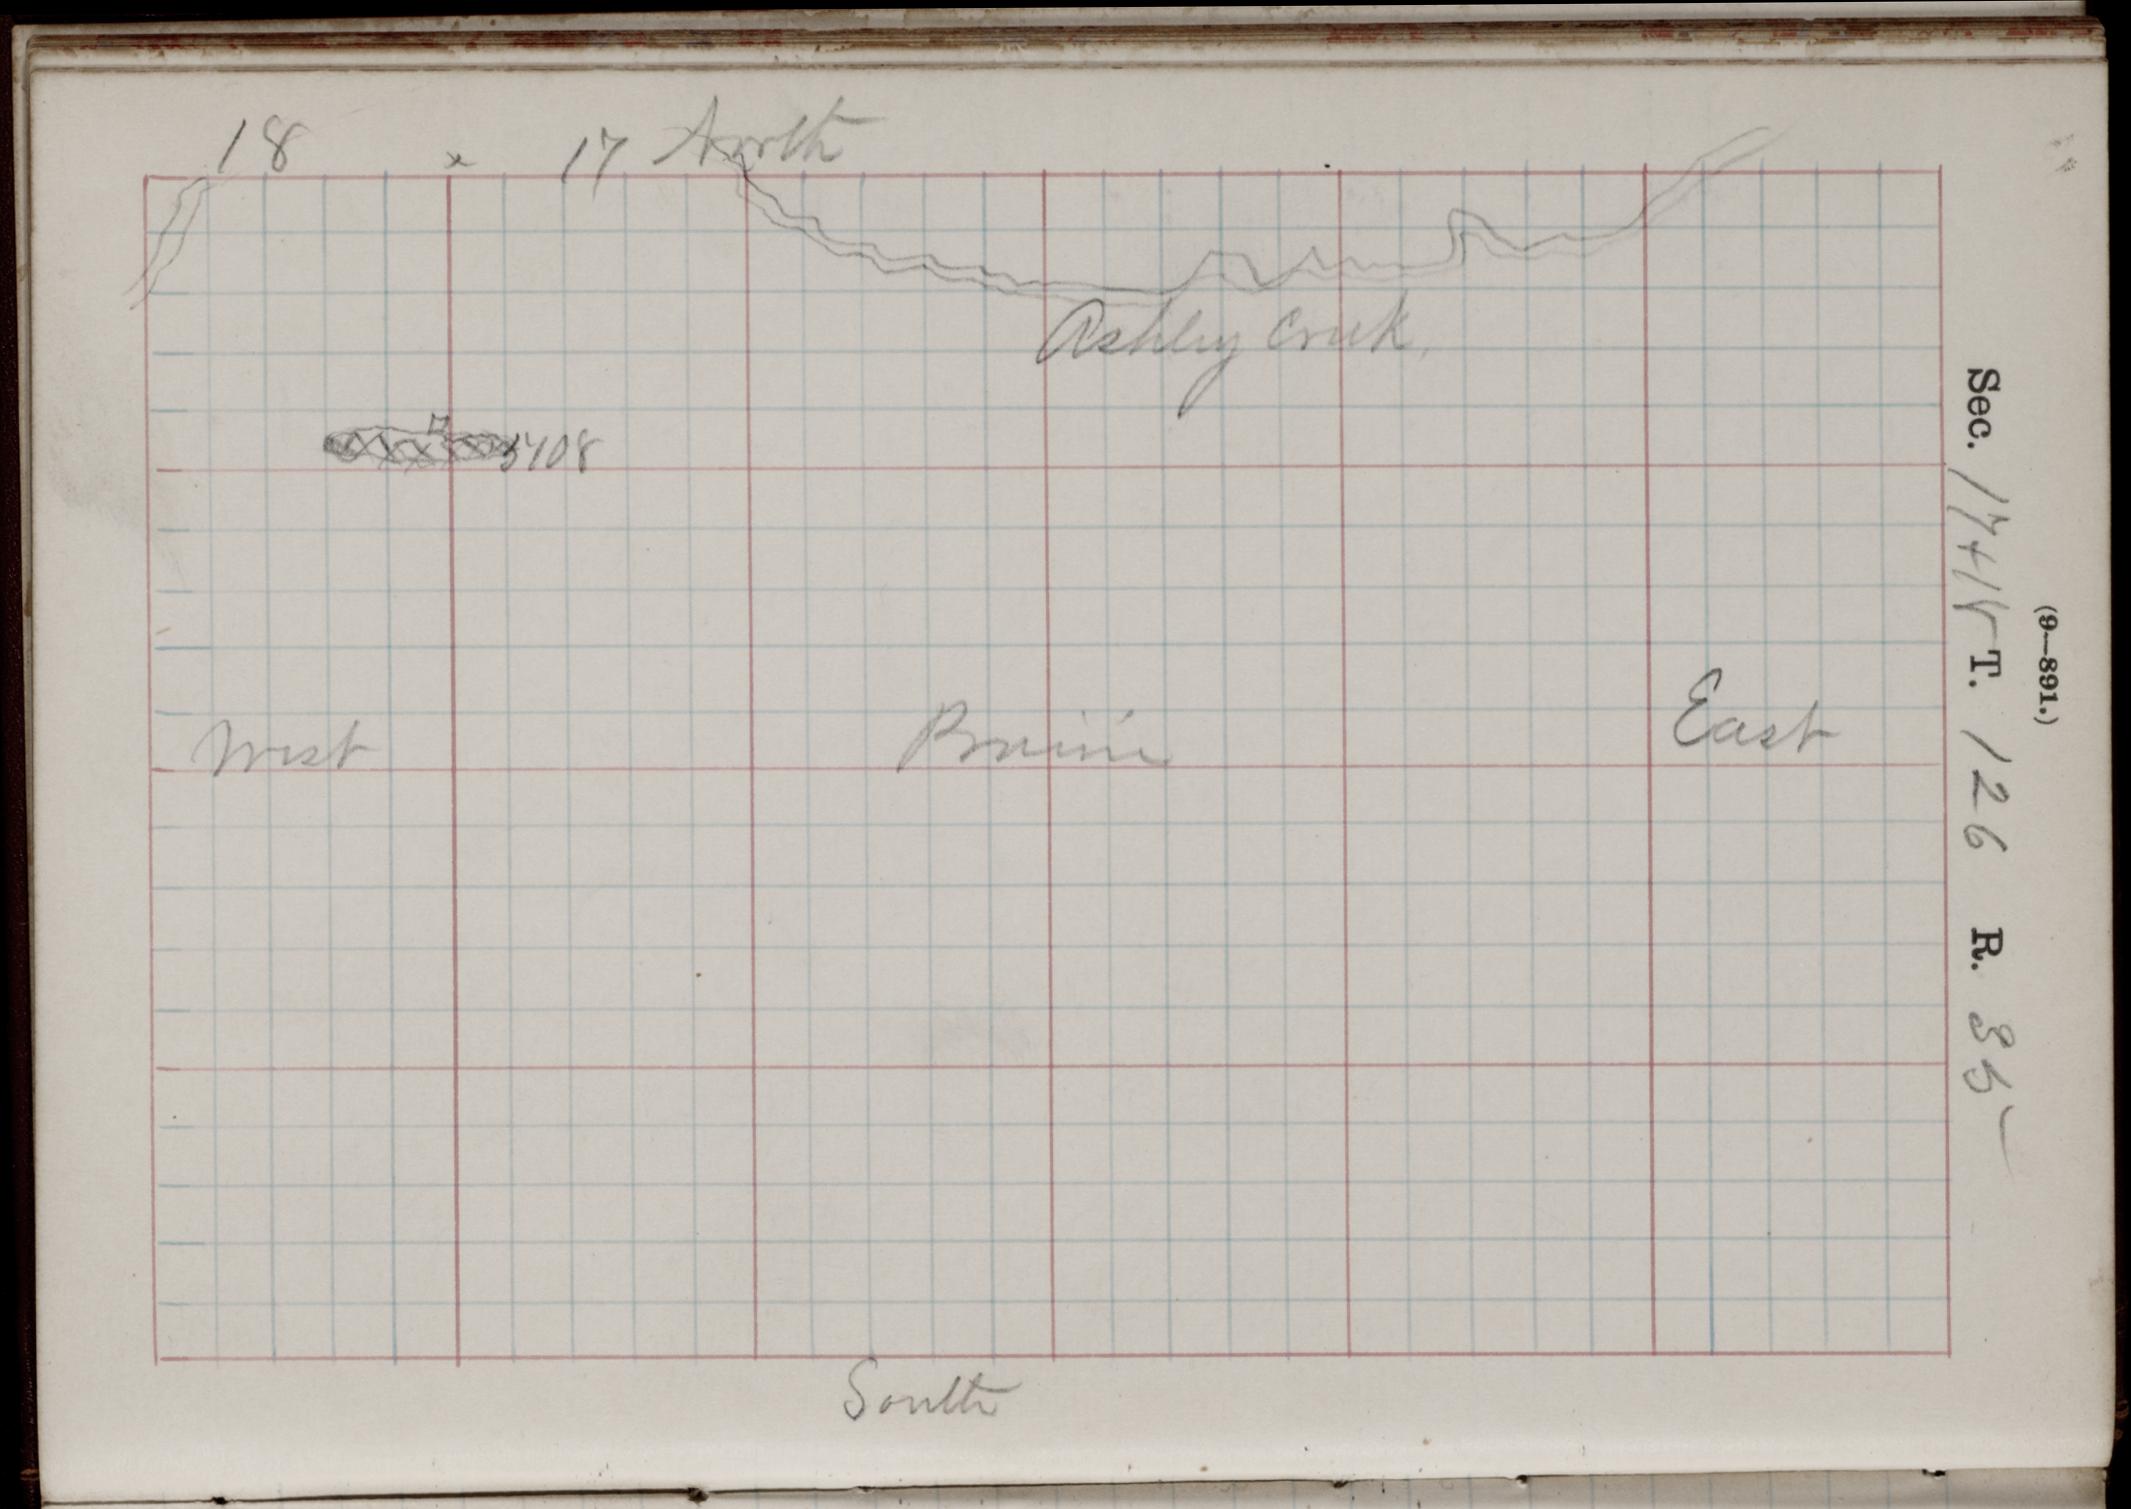 18 x 17 North
Ashley Creek.
5708
West Prairie East
South
Sec. 17+18 T. 126 R. 35
(9—891.)